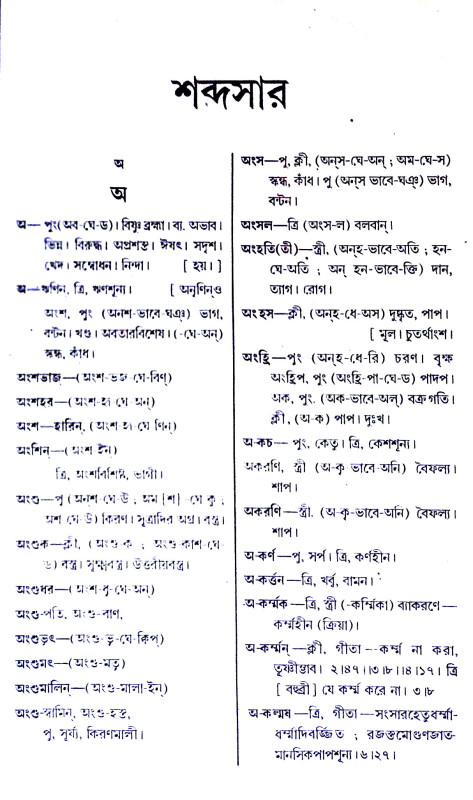 শব্দসার
অ
অ
অ—পুং(অব-ঘে-ড)। বিষ্ণু ব্রহ্মা। ব্য. অভাব।
ভিন্ন। বিরুদ্ধ। অপ্রশস্ত। ঈষৎ। সদৃশ।
খেদ। সম্বোধন। নিন্দা। [ হয়।]
অ—ঋণিন, ত্রি, ঋণশূন্য। [ অনৃণিন্‌ও
অংশ, পুং (অনশ-ভাবে-ঘঞ্) ভাগ,
বন্টন। খণ্ড। অবতারবিশেষ। (-ঘে-অন্)
স্কন্ধ, কাঁধ।
অংশভাজ্—(অংশ-ভজ্ ঘে-বিণ্)
অংশহর—(অংশ-হৃ ঘে অন্)
অংশ—হারিন্, (অংশ হৃ ঘে ণিন্)
অংশিন্—(অংশ ইন্)
ত্রি, অংশবিশিষ্ট, ভাগী।
অংশু—পু (অনশ-ঘে-উ ; অম [শ] -ঘে কু ;
অশ ঘে-উ) কিরণ। সূত্রাদির অগ্র। বস্ত্র।
অংশুক—ক্লী, (অংশু-ক ; অংশু-কাশ-ঘে-
ড) বস্ত্র। সূক্ষ্মবস্ত্র। উত্তরীয়বস্ত্র।
অংশুধর—(অংশ-ধৃ-ঘে-অন্)
অংশু-পতি, অংশু-বাণ,
অংশুভৃৎ—(অংশু-ভৃ-ঘে-ক্বিপ্)
অংশুমৎ—(অংশু-মতু)
অংশুমালিন্—(অংশু-মালা-ইন্)
অংশু-স্বামিন্, অংশু-হস্ত,
পু, সূর্য্য, কিরণমালী।
অংস—পু, ক্লী, (অন্‌স-ঘে-অন্ ; অম-ঘে-স)
স্কন্ধ, কাঁধ। পু (অন্‌স ভাবে-ঘঞ্) ভাগ,
বন্টন।
অংসল—ত্রি (অংস-ল) বলবান্।
অংহতি(তী)—স্ত্রী, (অন্‌হ-ভাবে-অতি ; হন-
ঘে-অতি ; অন্ হন-ভাবে-ক্তি) দান,
ত্যাগ। রোগ।
অংহস—ক্লী, (অন্‌হ-ধে-অস) দুষ্কৃত, পাপ।
[ মূল। চতুর্থাংশ।
অংহ্রি—পুং (অন্‌হ-ধে-রি) চরণ। বৃক্ষ
অংহ্রিপ, পুং (অংহ্রি-পা-ঘে-ড) পাদপ।
অক, পুং. (অক-ভাবে-অল্) বক্র গতি।
ক্লী, (অ-ক) পাপ। দুঃখ।
অ-কচ— পুং, কেতু। ত্রি, কেশশূন্য।
অকরণি, স্ত্রী (অ-কৃ ভাবে-অনি) বৈফল্য।
শাপ।
অকরণি—স্ত্রী. (অ-কৃ-ভাবে-অনি) বৈফল্য।
শাপ।
অ-কর্ণ—পু, সর্প। ত্রি, কর্ণহীন।
অ-কর্ত্তন—ত্রি, খর্ব্ব, বামন।
অ-কর্ম্মক—ত্রি, স্ত্রী (-কর্ম্মিকা) ব্যাকরণে—
কর্ম্মহীন (ক্রিয়া)।
অ-কর্ম্মন্—ক্লী, গীতা—কর্ম্ম না করা,
তূষ্ণীম্ভাব। ২।৪৭।।৩।৮।।৪।১৭। ত্রি
[ বহুব্রী ] যে কর্ম্ম করে না। ৩।৮
অ-কল্মষ—ত্রি, গীতা—সংসারহেতুধর্ম্মা-
ধর্ম্মাদিবর্জ্জিত ; রজস্তমোগুণজাত-
মানসিকপাপশূন্য। ৬।২৭।